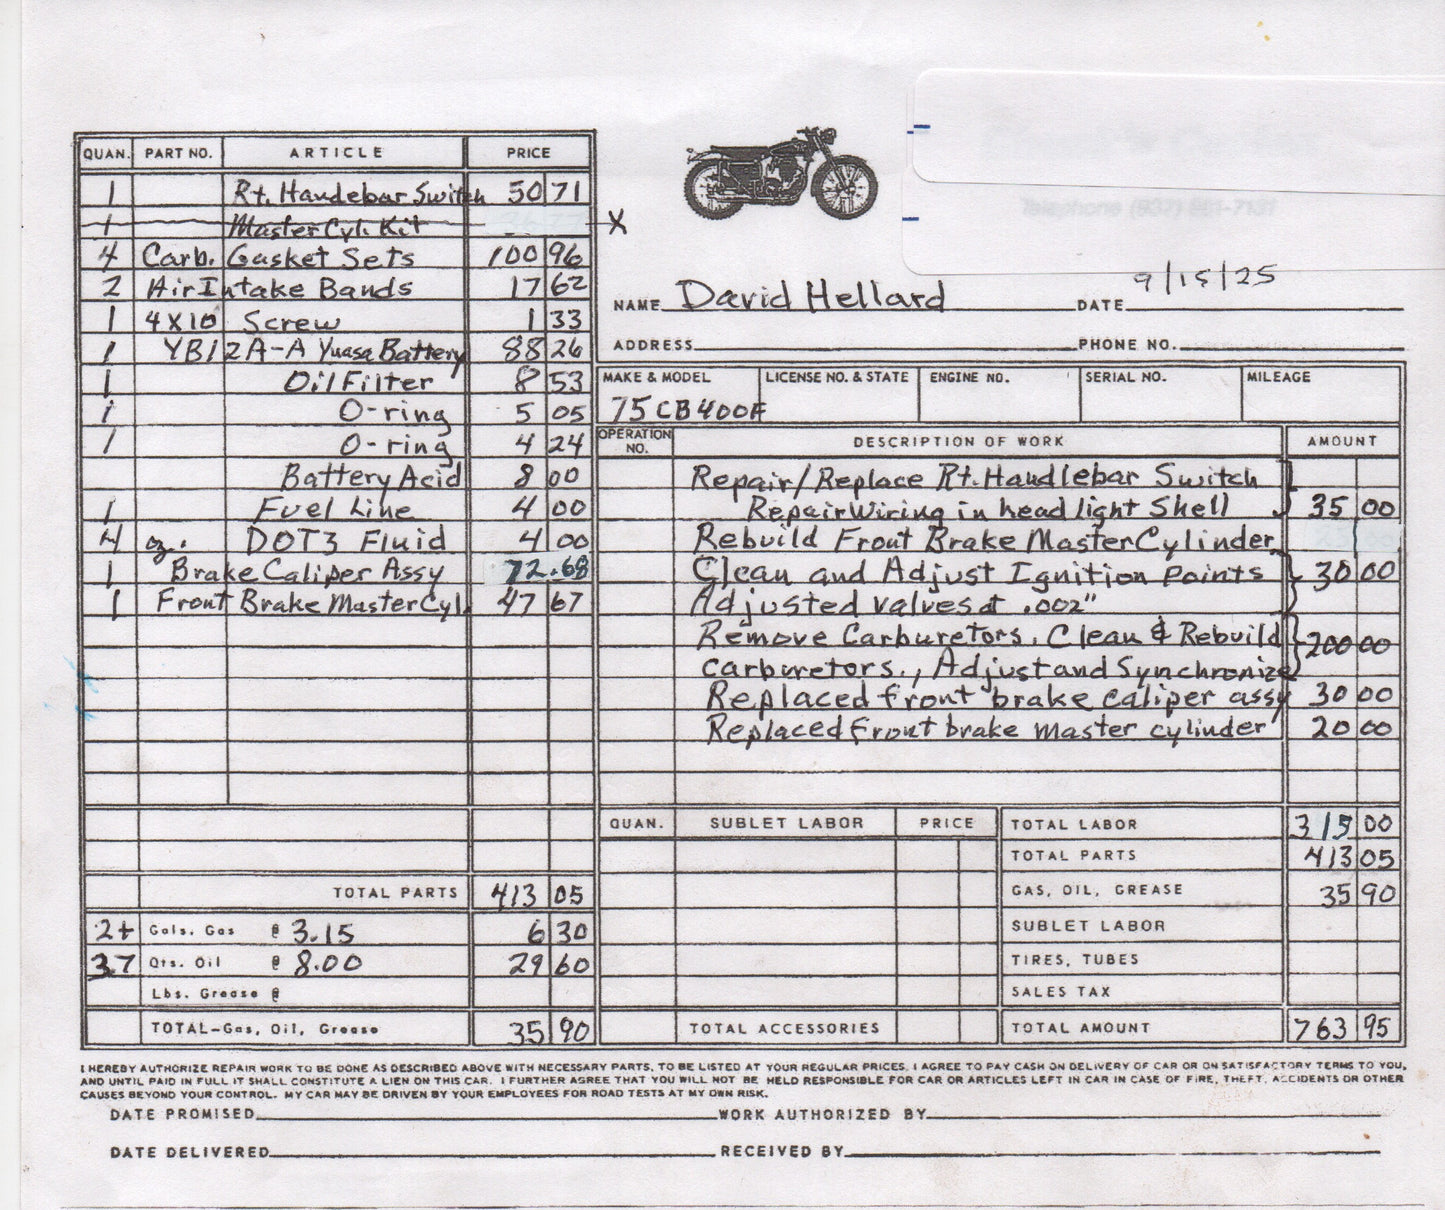 QUAN. PART NO. ARTICLE PRICE
1 Rt. Handebar Switch 50 71
1 Master Cyl. Kit
X
4 Carb. Gasket Sets 100 96
2 Air Intake Bands 17 62
1 4X10 Screw 1 33
1 YB12A-A Yuasa Battery 88 26
1 Oil Filter 8 53
1 O-ring 5 05
1 O-ring 4 24
Battery Acid 8 00
1 Fuel Line 4 00
4 oz. DOT3 Fluid 4 00
1 Brake Caliper Assy 72.68
1 Front Brake Master Cyl. 47 67
TOTAL PARTS 413 05
2+ Gals. Gas @ 3.15 6 30
3.7 Qts. Oil @ 8.00 29 60
Lbs. Grease @
TOTAL-Gas, Oil, Grease 35 90
Telephone (937)
NAME David Hellard DATE 9/15/25
ADDRESS PHONE NO.
MAKE & MODEL LICENSE NO. & STATE ENGINE NO. SERIAL NO. MILEAGE
75 CB400F
OPERATION NO. DESCRIPTION OF WORK AMOUNT
Repair/Replace Rt. Handlebar Switch
Repair Wiring in headlight Shell 35 00
Rebuild Front Brake Master Cylinder
Clean and Adjust Ignition Points 30 00
Adjusted valves at .002"
Remove Carburetors, Clean & Rebuild 200 00
carburetors., Adjust and Synchronize
Replaced front brake caliper assy 30 00
Replaced Front brake master cylinder 20 00
QUAN. SUBLET LABOR PRICE TOTAL LABOR 315 00
TOTAL PARTS 413 05
GAS, OIL, GREASE 35 90
SUBLET LABOR
TIRES, TUBES
SALES TAX
TOTAL ACCESSORIES TOTAL AMOUNT 763 95
I HEREBY AUTHORIZE REPAIR WORK TO BE DONE AS DESCRIBED ABOVE WITH NECESSARY PARTS, TO BE LISTED AT YOUR REGULAR PRICES. I AGREE TO PAY CASH ON DELIVERY OF CAR OR ON SATISFACTORY TERMS TO YOU,
AND UNTIL PAID IN FULL IT SHALL CONSTITUTE A LIEN ON THIS CAR. I FURTHER AGREE THAT YOU WILL NOT BE HELD RESPONSIBLE FOR CAR OR ARTICLES LEFT IN CAR IN CASE OF FIRE, THEFT, ACCIDENTS OR OTHER
CAUSES BEYOND YOUR CONTROL. MY CAR MAY BE DRIVEN BY YOUR EMPLOYEES FOR ROAD TESTS AT MY OWN RISK.
DATE PROMISED WORK AUTHORIZED BY
DATE DELIVERED RECEIVED BY